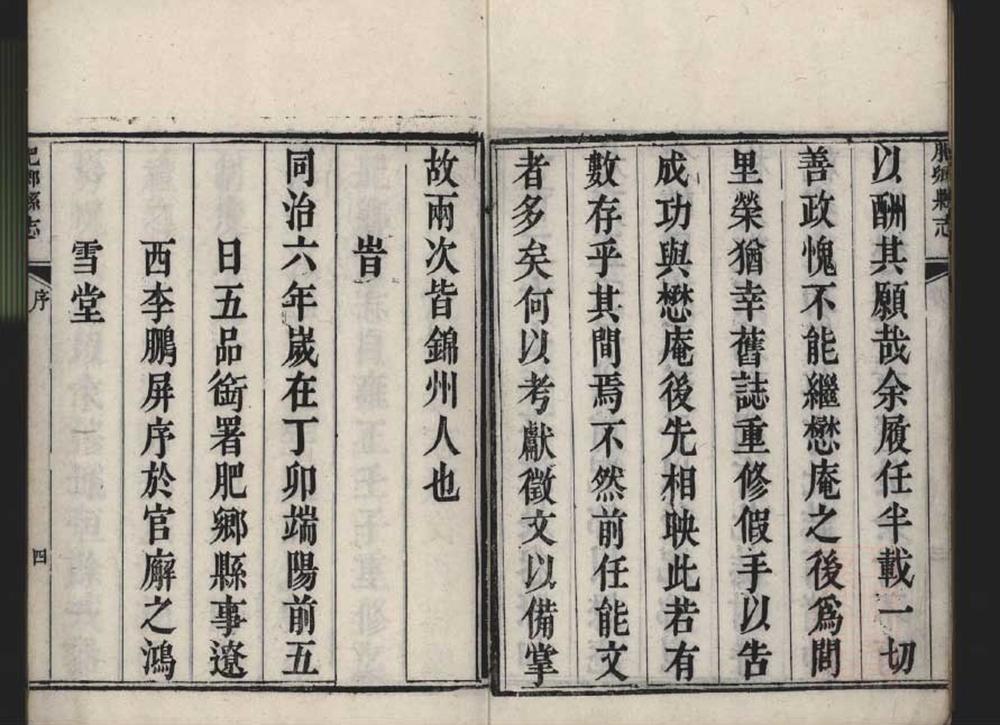 肥鄉縣志
以酬其願哉余履任半載一切
善政愧不能繼懋庵之後爲閭
里榮猶幸舊誌重修假手以告
成功與懋庵後先相映此若有
數存乎其間焉不然前任能文
者多矣何以考獻徵文以備掌
故兩次皆錦州人也
旹
同治六年歲在丁卯端陽前五
日五品銜署肥鄉縣事遼
西李鵬屏序於官廨之鴻
雪堂
肥鄉縣志
序
四